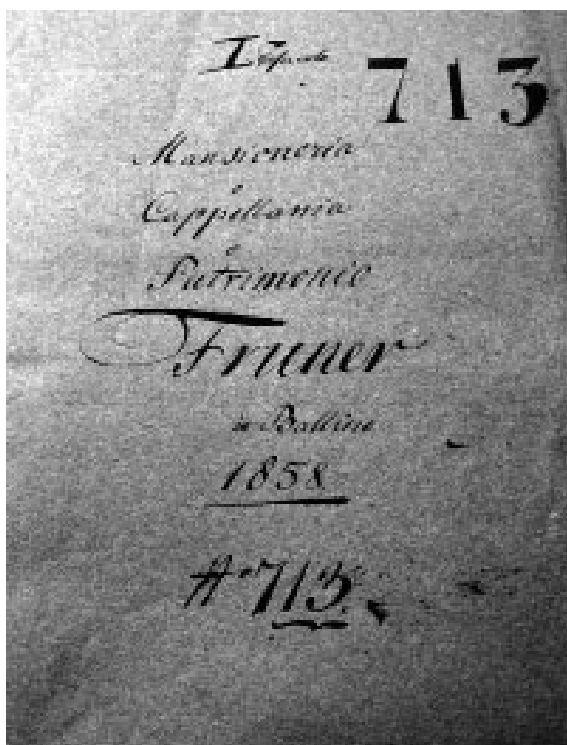 713
Mansioneria
o
Cappellania
o
Patrimonio
Fruner
in Ballino
1858
713